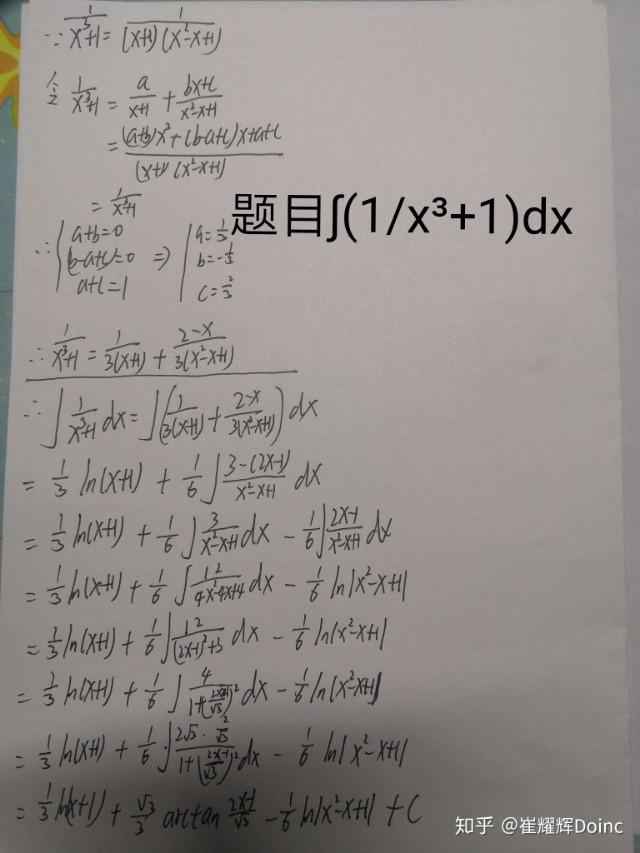 ∵ 1/(x³+1) = 1/((x+1)(x²-x+1))
令 1/(x³+1) = a/(x+1) + (bx+c)/(x²-x+1)
= ((a+b)x²+(b-a+c)x+a+c)/((x+1)(x²-x+1))
= 1/(x³+1)
题目∫(1/x³+1)dx
∴ { a+b=0 ⇒ { a=1/3
b-a+c=0 b=-1/3
a+c=1 c=2/3
∴ 1/(x³+1) = 1/(3(x+1)) + (2-x)/(3(x²-x+1))
∴ ∫ 1/(x³+1) dx = ∫(1/(3(x+1)) + (2-x)/(3(x²-x+1))) dx
= 1/3 ln(x+1) + 1/6 ∫ (3-(2x-1))/(x²-x+1) dx
= 1/3 ln(x+1) + 1/6 ∫ 3/(x²-x+1) dx - 1/6 ∫ (2x-1)/(x²-x+1) dx
= 1/3 ln(x+1) + 1/6 ∫ 12/(4x²-4x+4) dx - 1/6 ln|x²-x+1|
= 1/3 ln(x+1) + 1/6 ∫ 12/((2x-1)²+3) dx - 1/6 ln|x²-x+1|
= 1/3 ln(x+1) + 1/6 ∫ 4/(1+((2x-1)/√3)²) dx - 1/6 ln(x²-x+1)
= 1/3 ln(x+1) + 1/6 · ∫ (2√3 · 2/√3)/(1+((2x-1)/√3)²) dx - 1/6 ln|x²-x+1|
= 1/3 ln|x+1| + √3/3 arctan (2x-1)/√3 - 1/6 ln|x²-x+1| + C
知乎 @崔耀辉Doinc